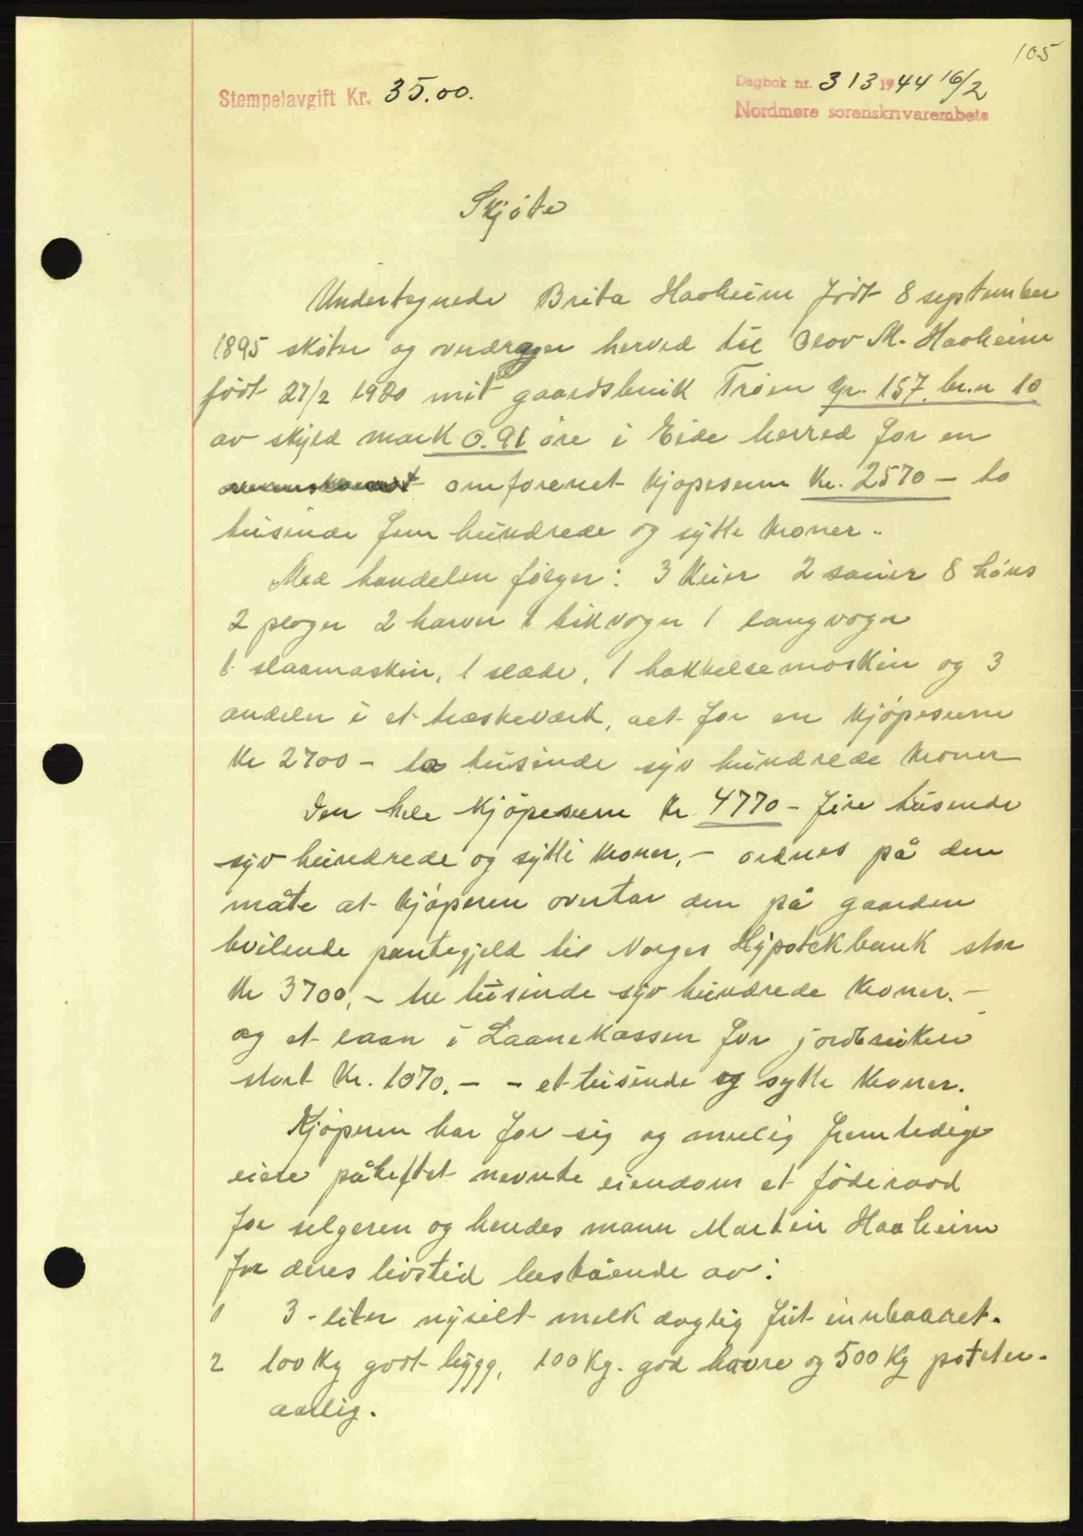 105
Stempelavgift Kr. 35.00.
Dagbok nr. 313 1944 16/2
Nordmøre sorenskrivarembete
Skjöte
Undertegnede Brita Haaheim født 8 september
1895 skøter og overdrager herved til Olov M. Haaheim
født 27/2 1920 mit gaardsbruk Trøen gr. 157. br.n 10
av skyld mark 0.91 øre i Eide herred for en
omforenet kjøpesum kr. 2570 - to
tusinde fem hundrede og sytti kroner.
Med handelen følger: 3 kuer 2 sauer 8 høns
2 ploger 2 harver 1 kikvogn 1 langvogn
1 slaamaskin, 1 slæde, 1 hakkelsemaskin og 3
andeler i et træskeværk, alt for en kjøpesum
kr 2700 - to tusinde syv hundrede kroner
Den hele kjøpesum kr. 4770 - fire tusende
syv hundrede og sytti kroner, - ordnes på den
måte at kjøperen overtar den på gaarden
hvilende pantegjeld til Norges Hypotekbank stor
kr 3700, - tre tusinde syv hundrede kroner. -
og et laan i Laanekassen for jordbrukere
stort kr. 1070. - - et tusinde og sytti kroner.
Kjøperen har for sig og mulig fremtidige
eiere påheftet nevnte eiendom et föderaad
for selgeren og hendes mann Martin Haaheim
for deres livstid bestående av:
1 3 - liter nysilt melk daglig frit innbaaret.
2 100 Kg godt bygg, 100 Kg. god havre og 500 Kg poteter.
aarlig.